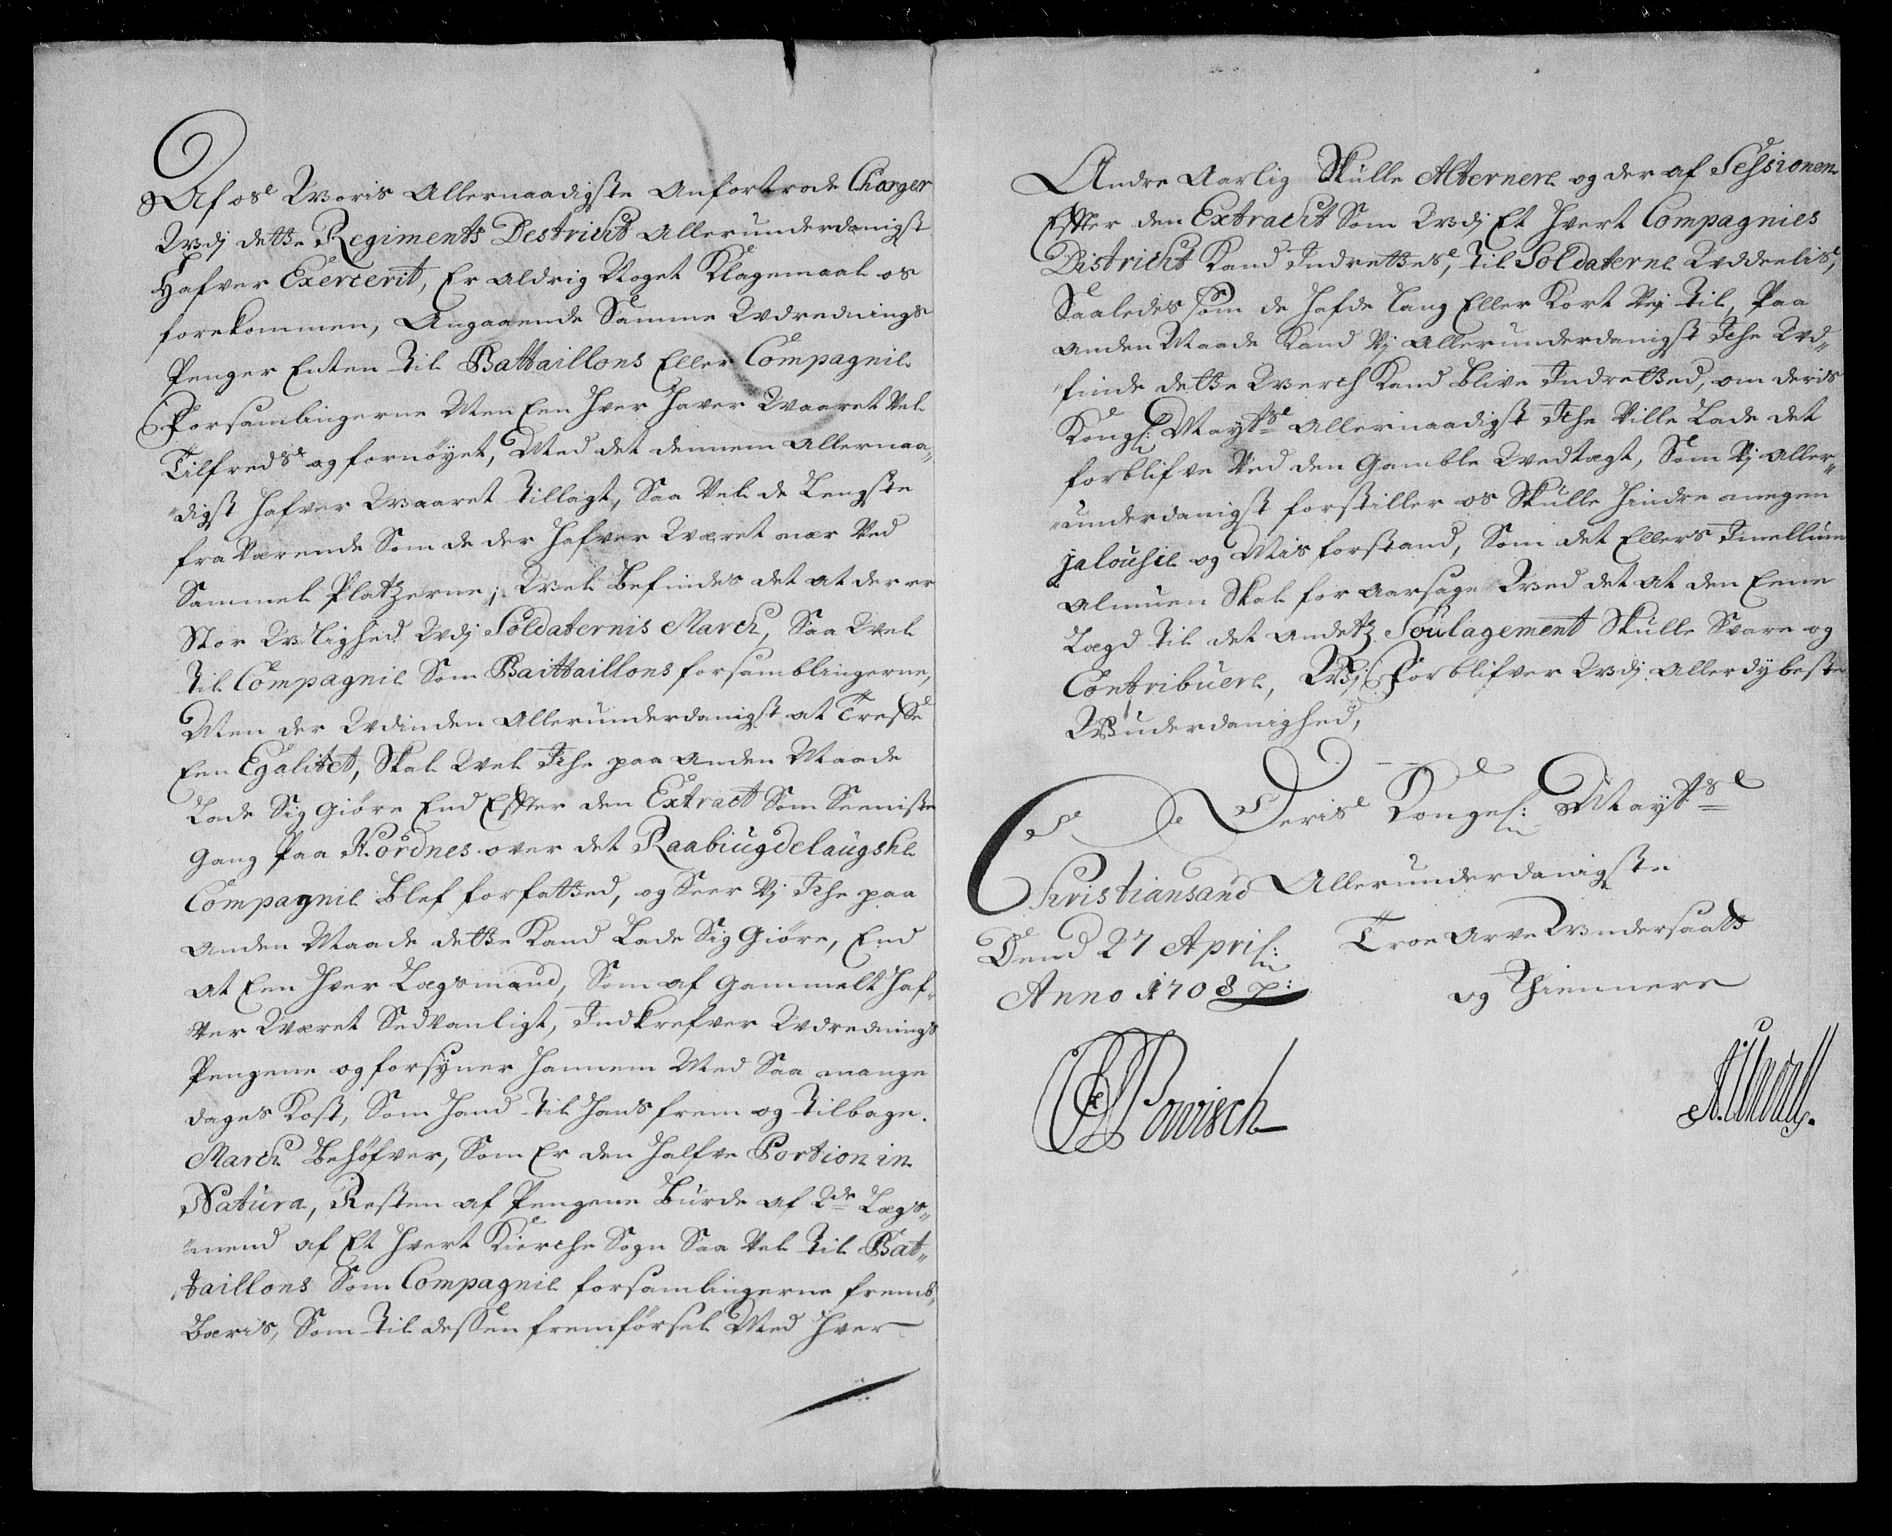 Af os Woris Allernaadigste Anfortrode Charger
Wdj dette Regiments Destricht Allerunderdanigst
Hafver Exercerit, Er Aldrig Noget Klagemaal os
forekommen, Angaaende Samme Wdrednings
Penger Enten til Battaillons Eller Compagnie
Forsamlingerne Men Een Hver Haver Waaret Vel
Tilfreds og fornøyet, Med det dennem Allernaa„
„digst Hafver Waaret tillagt, Saa Vel de Lengste
fra Værende Som de der Hafver Wæret nær Ved
Sammel Platzerne; Wel Befindes det at der er
Stor Wlighed Wdj Soldaternis March, Saa Wel
til Compagnie Som Baittaillons forsamblingerne,
Men der Wdinden Allerunderdanigst at Treffe
Een Egalitet, Skal Wel Iche paa Anden Maade
Lade Sig Giøre End Effter den Extract Som Seeniste
Gang Paa Nordnes over det Raabiugdelaugske
Compagnie Blef forfatted, og Seer Vj Iche paa
Anden Maade dette Kand Lade Sig Giøre, End
At Een Hver Lægsmand, Som af Gammelt Haf„
„ver Wæret Sedvanligt, Indkrefver Wdrednings
Pengene og forsyner Hannem Med Saa mange
dages Kost, Som Hand til Hans frem og Tilbage
March Behøfver, Som Er den Halfve Portion in
Natura, Resten af Pengene Burde af 2de Lægs„
„mend af Et Hvert Kierche Sogn Saa Vel til Bat„
taillons Som Compagnie forsamlingerne frem„
Bæris, Som til dessen fremførsel Med Hver
Andre Aarlig Skulle Alternere og der af Sessionen
Effter den Extracht Som Wdj Et Hvert Compagnies
Districht Kand Indrettes, til Soldaterne Wddeelis,
Saaledes som de Hafde Lang Eller Kort Vej til, Paa
Anden Maade Kand Vj Allerunderdanigst Iche Wd„
„finde dette Werch Kand Blive Indretted, om Deris
Kongl: Maytts Allernaadigst Iche Ville Lade det
forblifve Ved den Gamble Wedtægt, Som Vj Aller„
„underdanigst forstiller os Skulle Hindre megen
jalousie og Misforstand, Som det Ellers Imellum
Almuen Skal for Aarsage Wed det at den Eene
Lægd til det Andetz Soulagement Skulle Svare og
Contribuere, Wj Forblifver Wdj Allerdybeste
Wnderdanighed,
Deris Kongel: Maytts
Christiansand Allerunderdanigste
Dend 27 April: Troe Arve Wndersaatts
Anno 1708 og Thiennere
Powisch